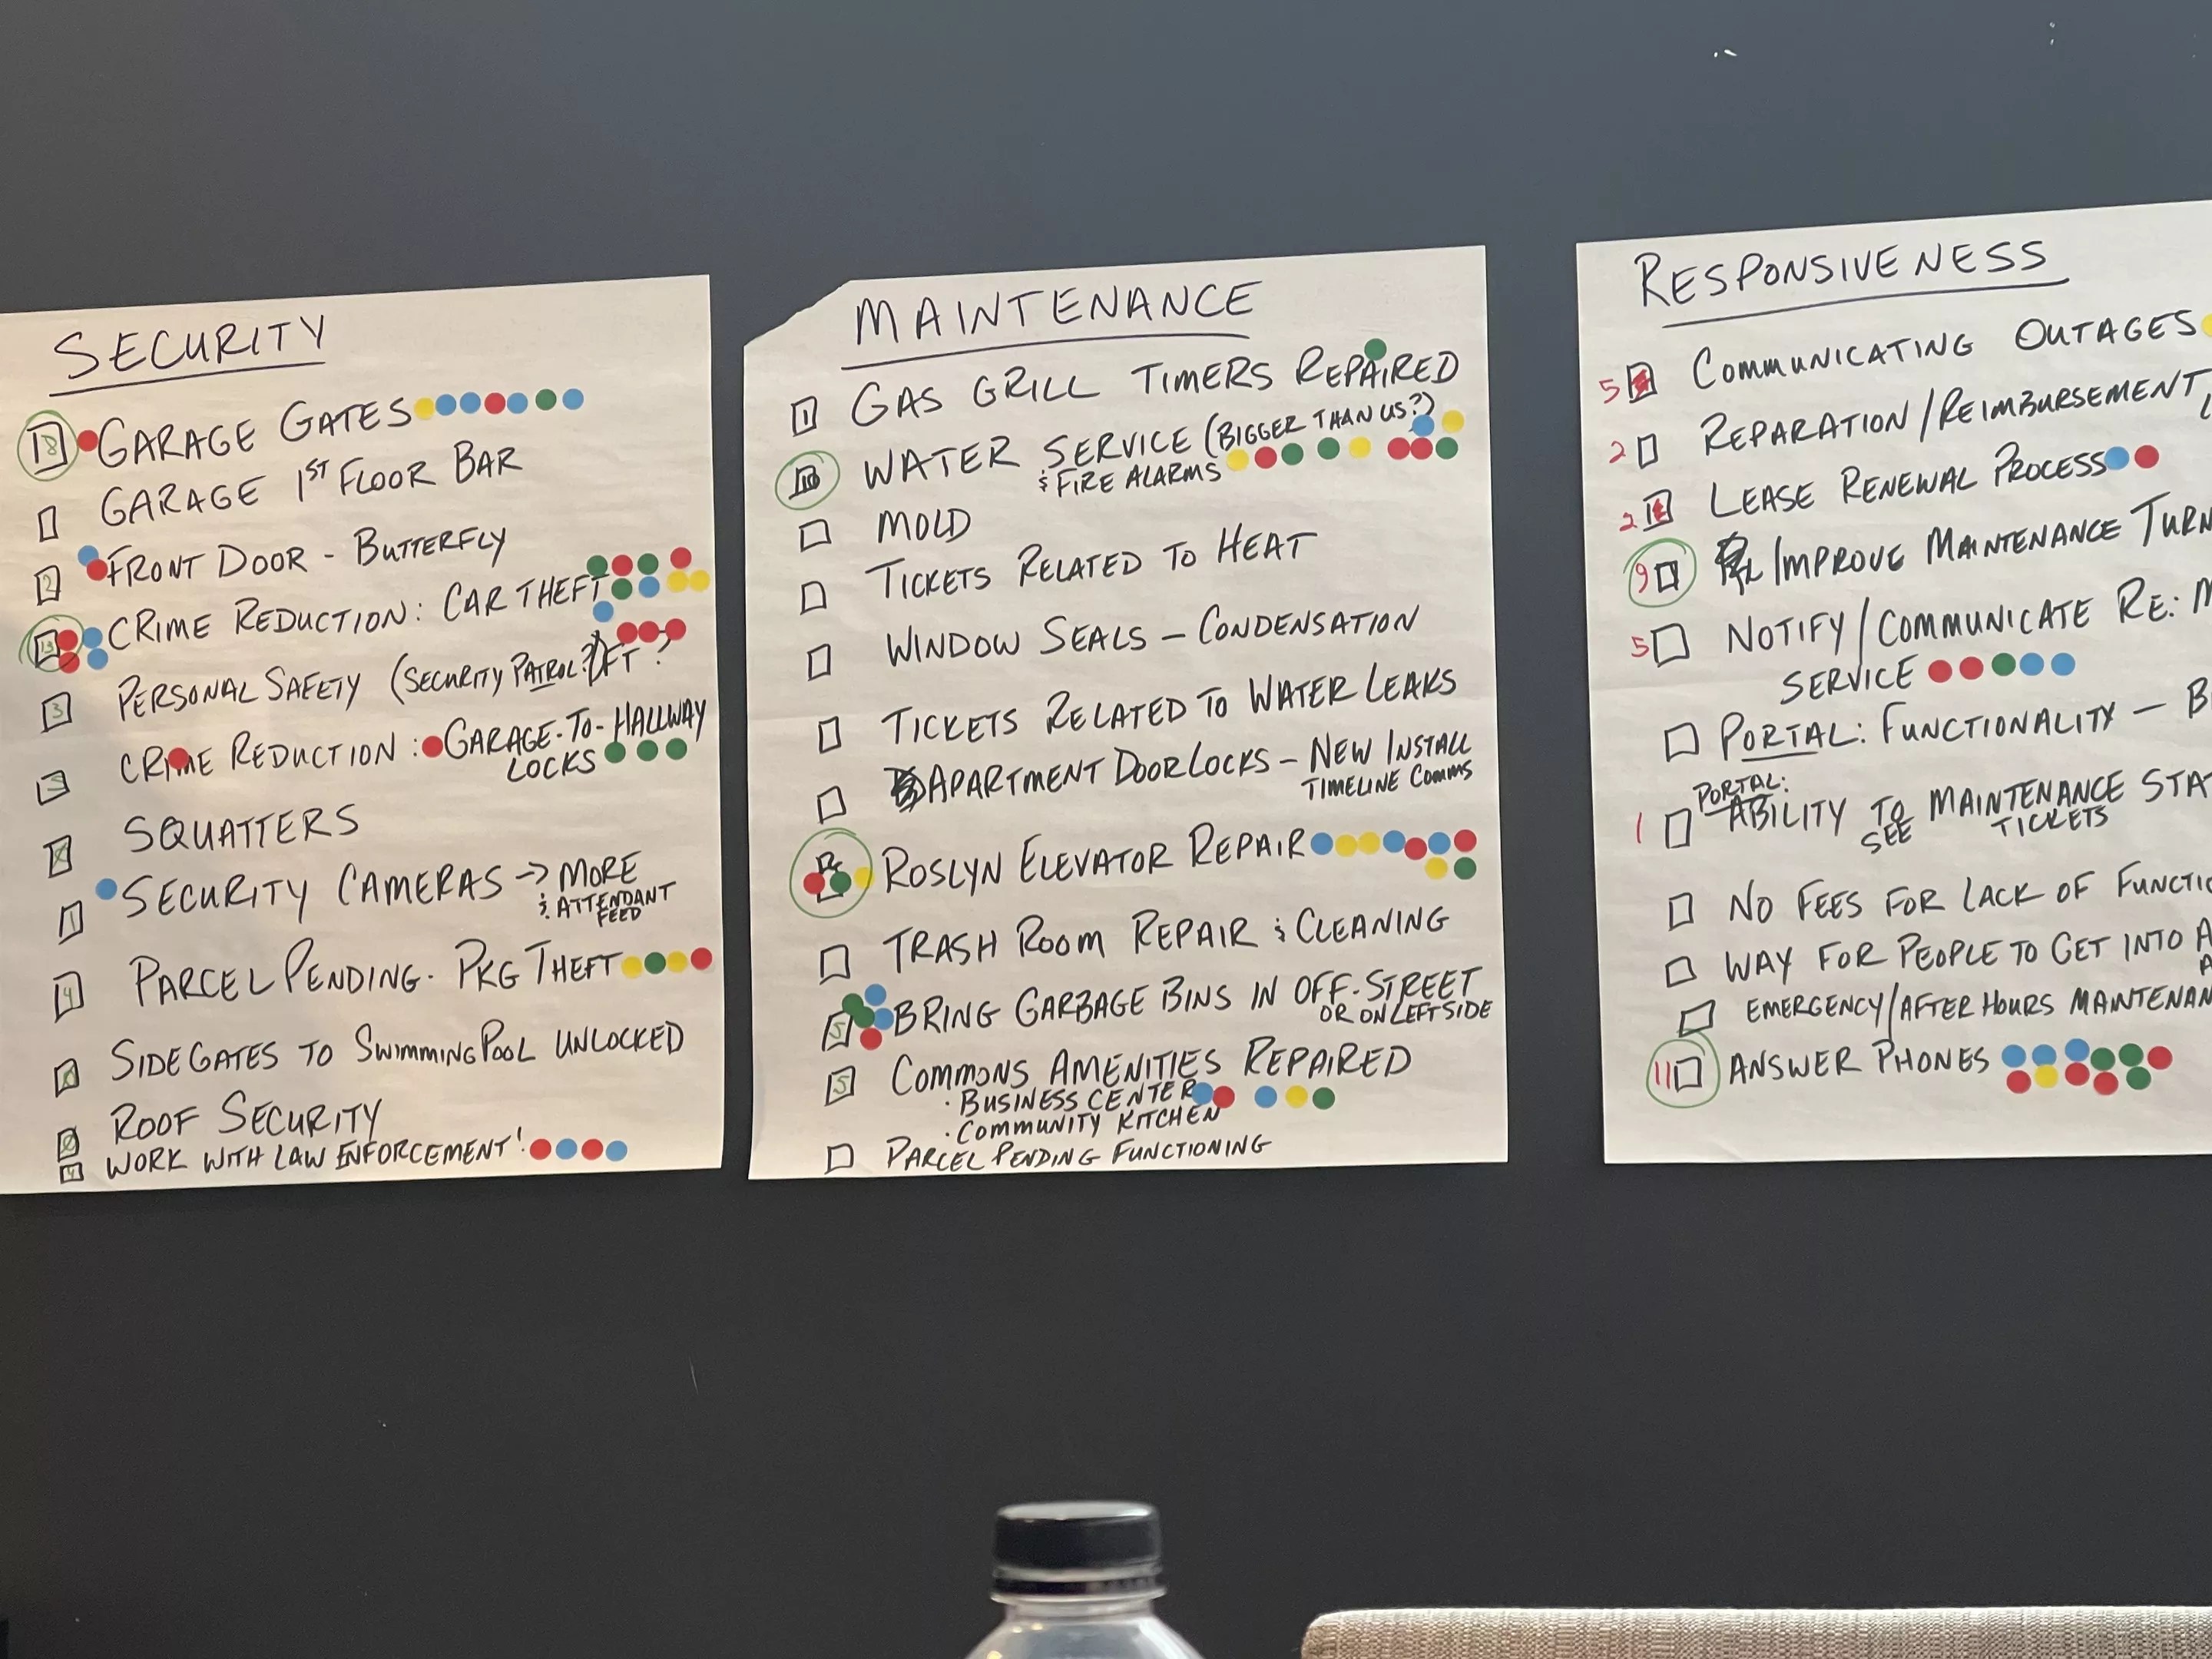 SECURITY
18 GARAGE GATES
GARAGE 1ST FLOOR BAR
2 FRONT DOOR - BUTTERFLY
13 CRIME REDUCTION: CAR THEFT
3 PERSONAL SAFETY (SECURITY PATROL?)
CRIME REDUCTION: GARAGE-TO-HALLWAY
LOCKS
SQUATTERS
1 SECURITY CAMERAS → MORE
& ATTENDANT
FEED
4 PARCEL PENDING - PKG THEFT
SIDE GATES TO SWIMMING POOL UNLOCKED
ROOF SECURITY
4 WORK WITH LAW ENFORCEMENT!
MAINTENANCE
1 GAS GRILL TIMERS REPAIRED
10 WATER SERVICE (BIGGER THAN US?)
& FIRE ALARMS
MOLD
TICKETS RELATED TO HEAT
WINDOW SEALS - CONDENSATION
TICKETS RELATED TO WATER LEAKS
APARTMENT DOOR LOCKS - NEW INSTALL
TIMELINE COMMS
ROSLYN ELEVATOR REPAIR
TRASH ROOM REPAIR & CLEANING
5 BRING GARBAGE BINS IN OFF-STREET
OR ON LEFT SIDE
5 COMMONS AMENITIES REPAIRED
· BUSINESS CENTER
· COMMUNITY KITCHEN
PARCEL PENDING FUNCTIONING
RESPONSIVENESS
5 COMMUNICATING OUTAGES
2 REPARATION/REIMBURSEMENT
2 LEASE RENEWAL PROCESS
9 IMPROVE MAINTENANCE TURN
5 NOTIFY/COMMUNICATE RE: M
SERVICE
PORTAL: FUNCTIONALITY - B
PORTAL:
1 ABILITY TO SEE MAINTENANCE STA
TICKETS
NO FEES FOR LACK OF FUNCTIO
WAY FOR PEOPLE TO GET INTO A
EMERGENCY/AFTER HOURS MAINTENAN
11 ANSWER PHONES